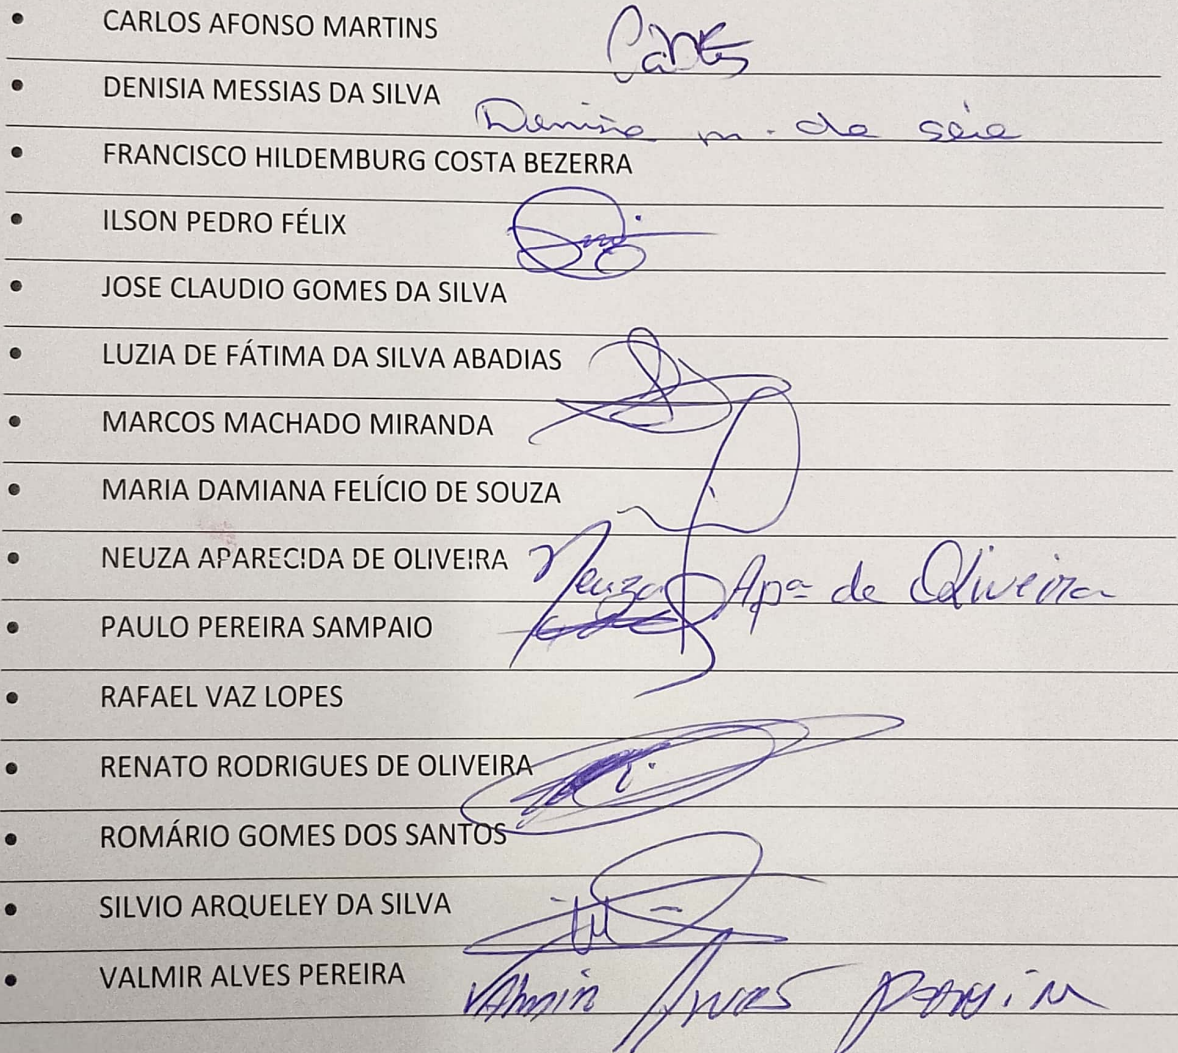 • CARLOS AFONSO MARTINS
• DENISIA MESSIAS DA SILVA
• FRANCISCO HILDEMBURG COSTA BEZERRA
• ILSON PEDRO FÉLIX
• JOSE CLAUDIO GOMES DA SILVA
• LUZIA DE FÁTIMA DA SILVA ABADIAS
• MARCOS MACHADO MIRANDA
• MARIA DAMIANA FELÍCIO DE SOUZA
• NEUZA APARECIDA DE OLIVEIRA Neuza Apª de Oliveira
• PAULO PEREIRA SAMPAIO
• RAFAEL VAZ LOPES
• RENATO RODRIGUES DE OLIVEIRA
• ROMÁRIO GOMES DOS SANTOS
• SILVIO ARQUELEY DA SILVA
• VALMIR ALVES PEREIRA